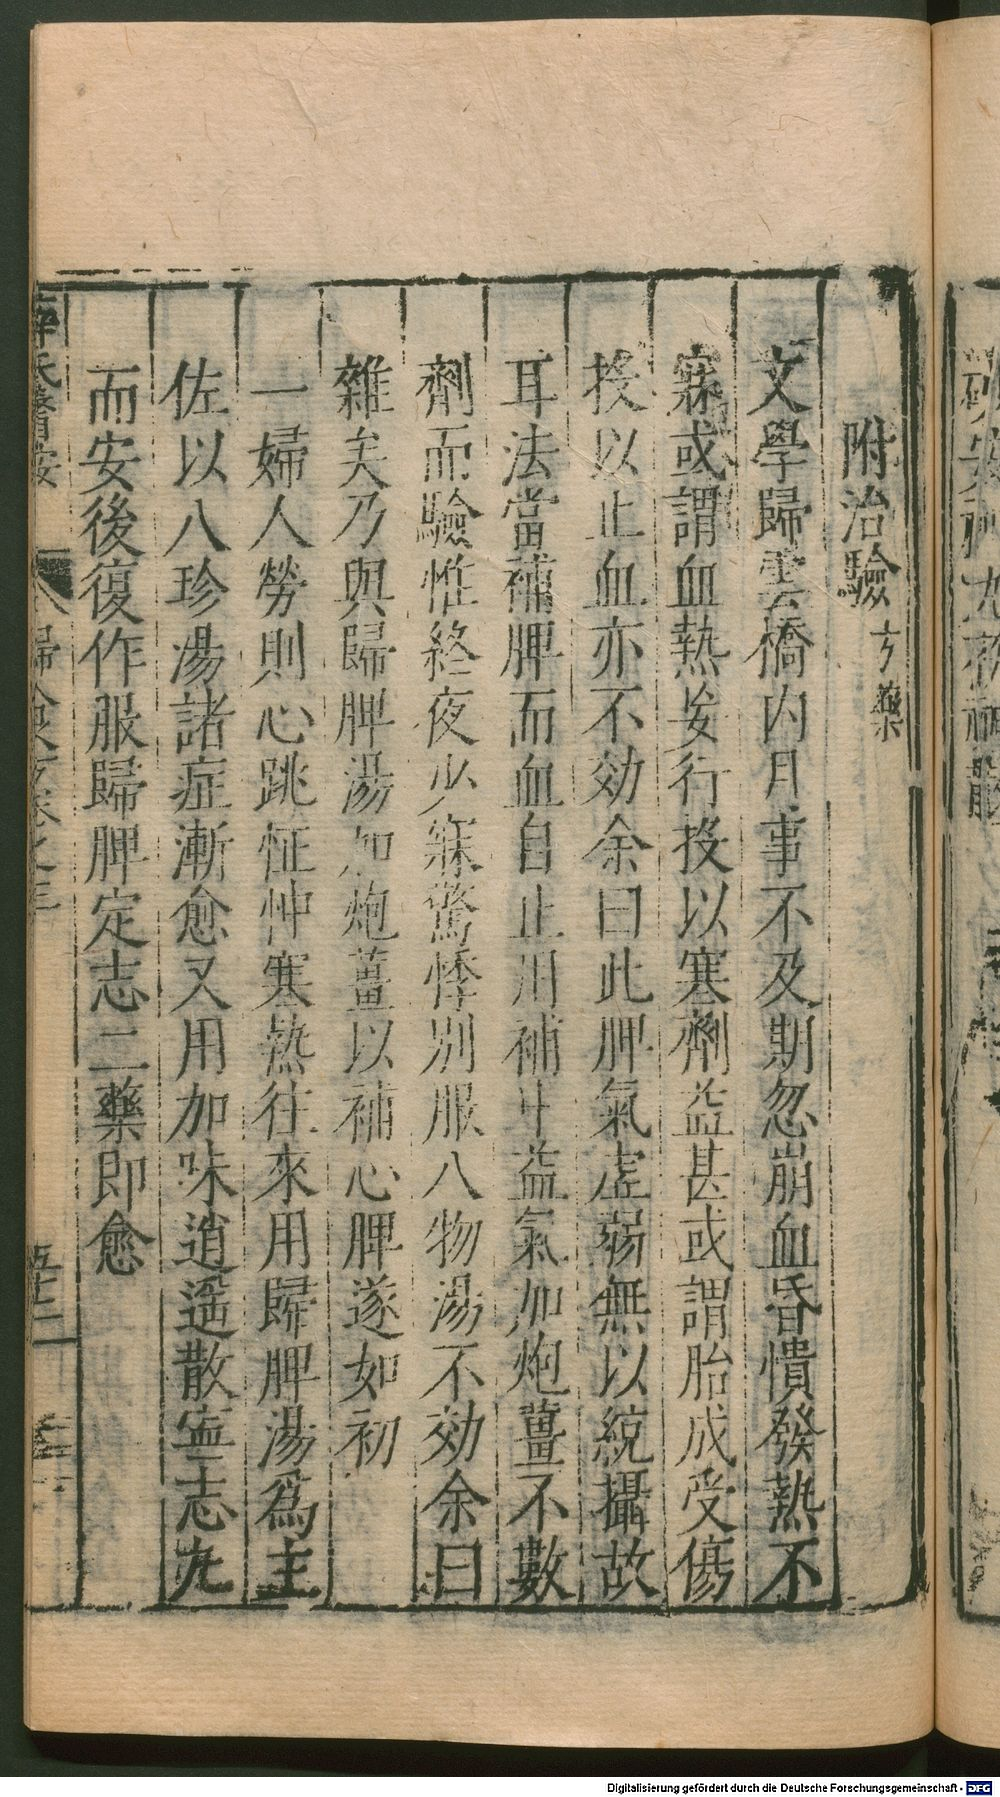 附治驗方藥
文學歸雲橋内月事不及期忽崩血昏憒發熱不
寐或謂血熱妄行投以寒劑益甚或謂胎成受傷
投以止血亦不効余曰此脾氣虚弱無以統攝故
耳法當補脾而血自止用補中益氣加炮薑不數
劑而驗惟終夜少寐驚悸別服八物湯不効余曰
雜矣乃與歸脾湯加炮薑以補心脾遂如初
一婦人勞則心跳怔忡寒熱往來用歸脾湯爲主
佐以八珍湯諸症漸愈又用加味逍遥散寧志丸
而安後復作服歸脾定志二藥即愈
薛氏醫按
五十二
Digitalisierung gefördert durch die Deutsche Forschungsgemeinschaft - DFG